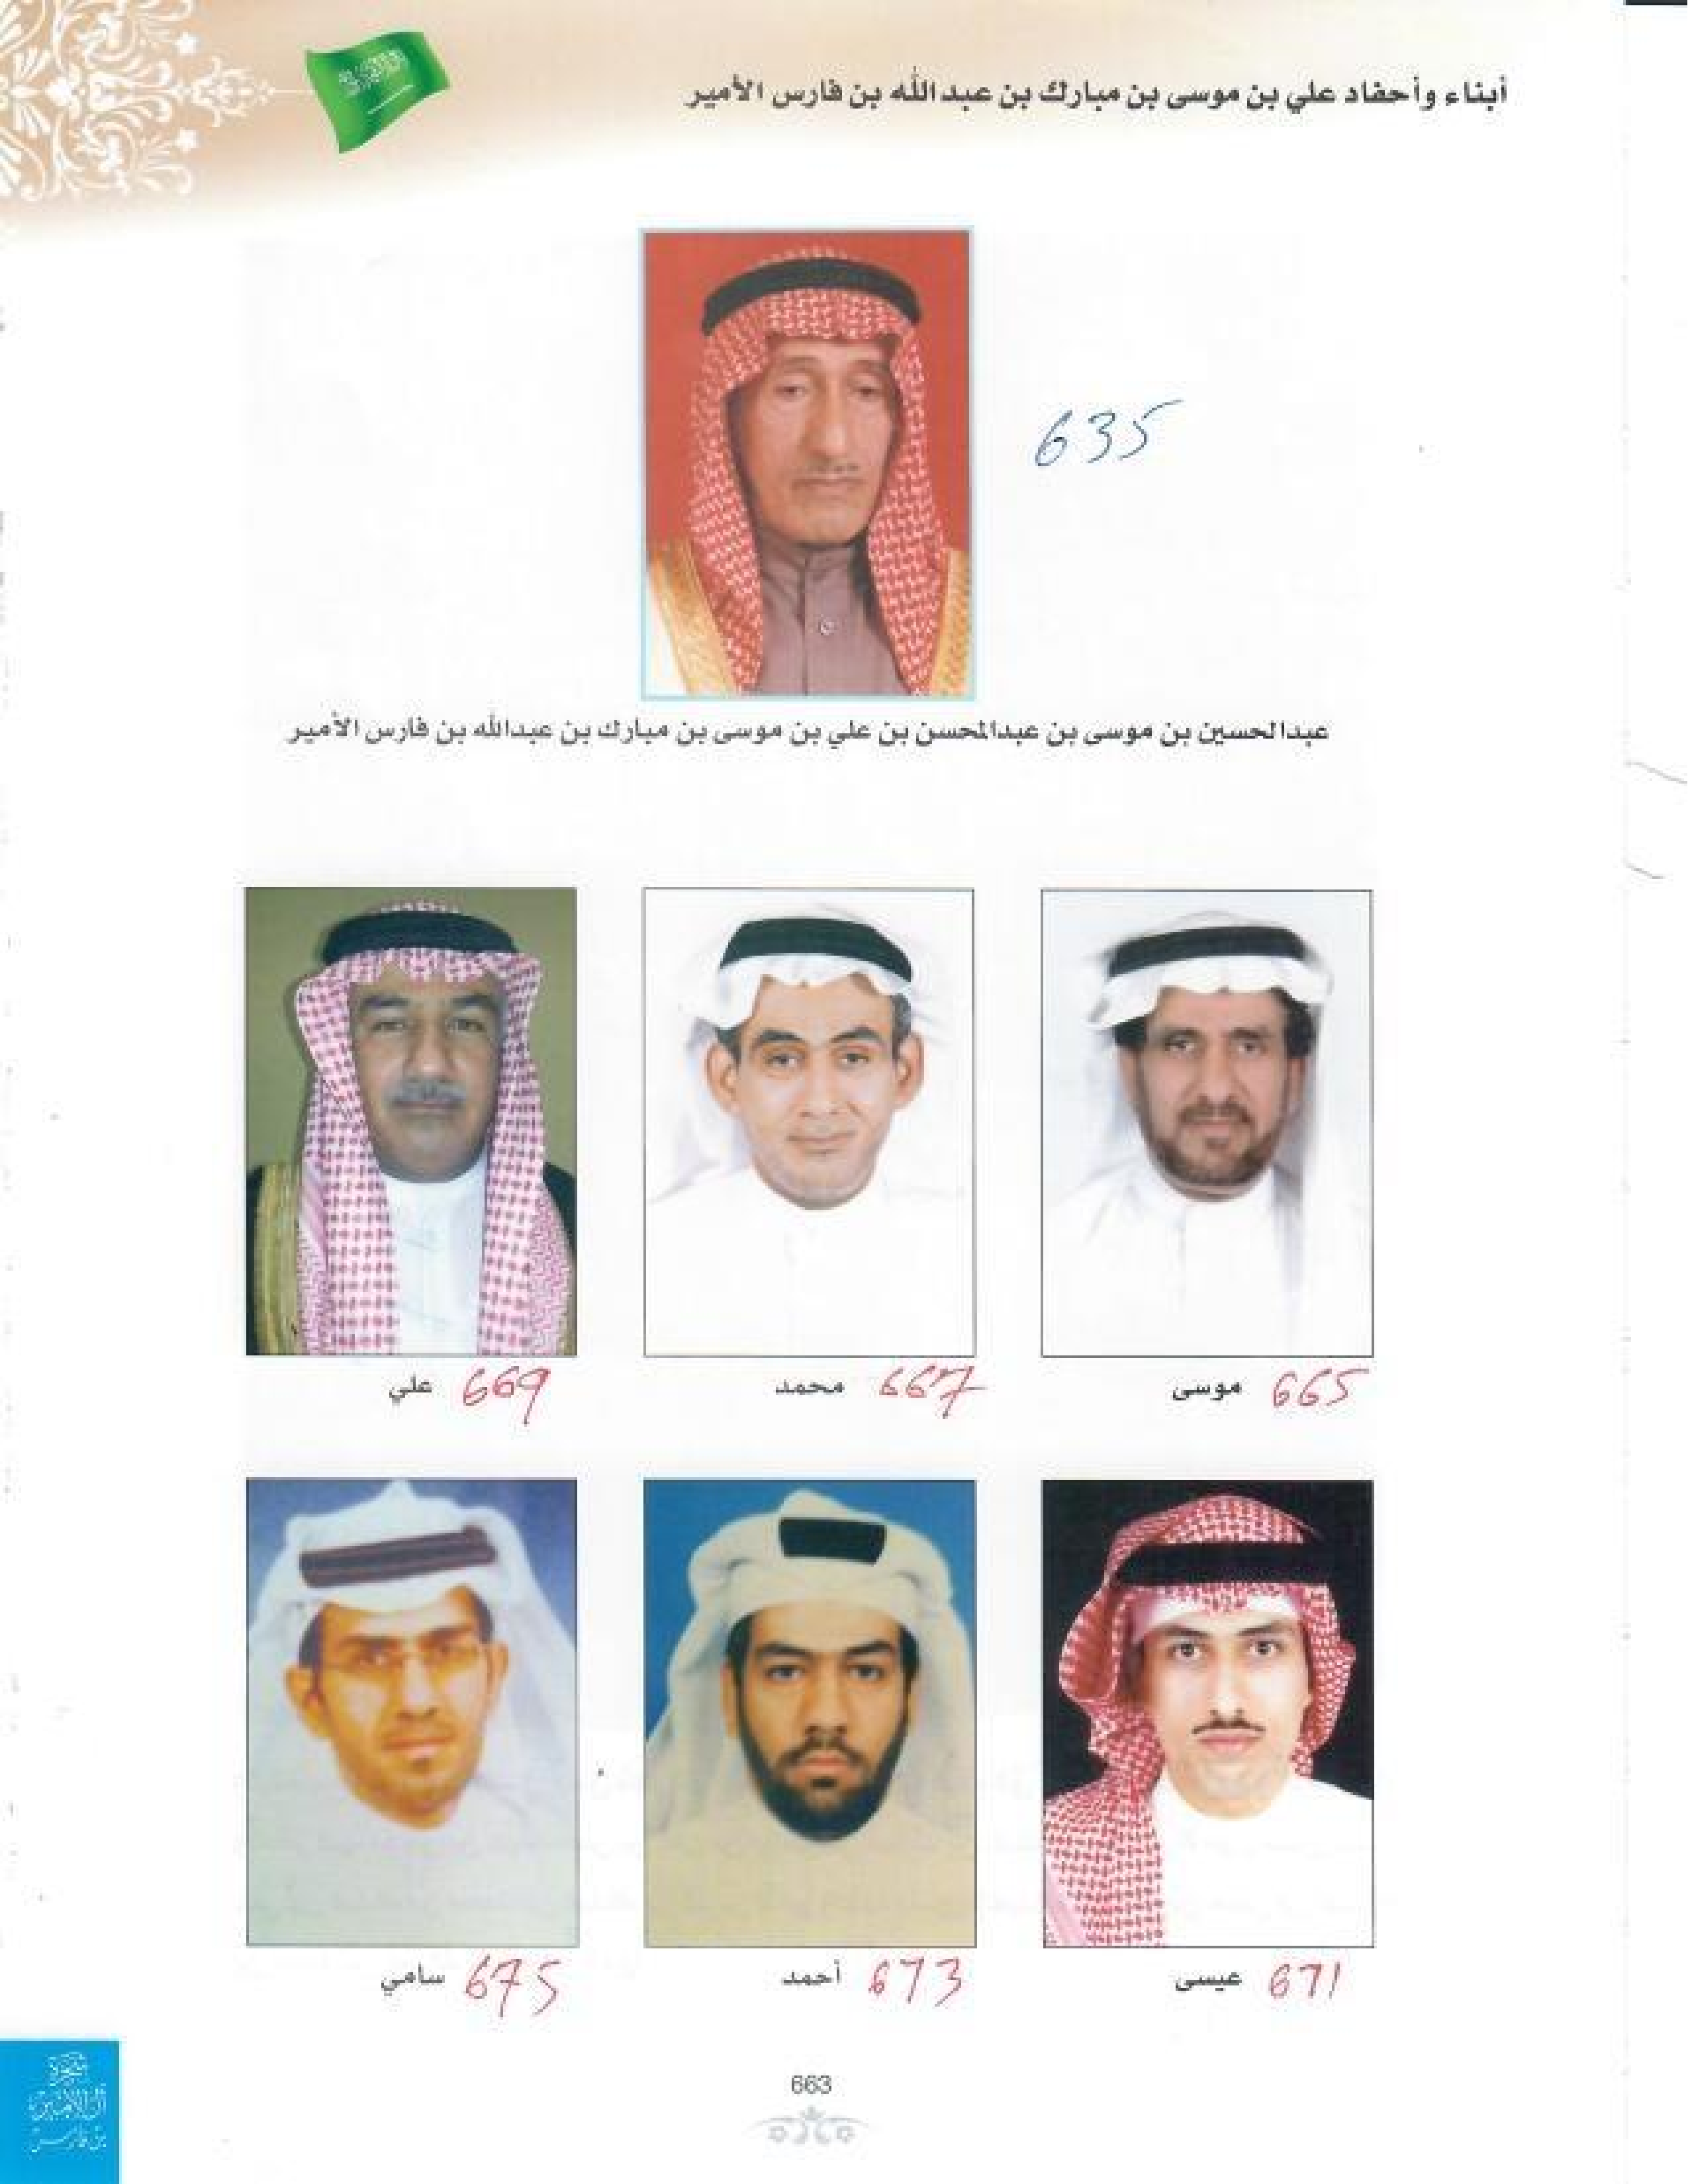 أبناء وأحفاد علي بن موسى بن مبارك بن عبدالله بن فارس الأمير
635
عبدالحسين بن موسى بن عبدالمحسن بن علي بن موسى بن مبارك بن عبدالله بن فارس الأمير
موسى 665
محمد 667
علي 669
عيسى 671
أحمد 673
سامي 675
663
شجرة
آل الأمير
بن فارس